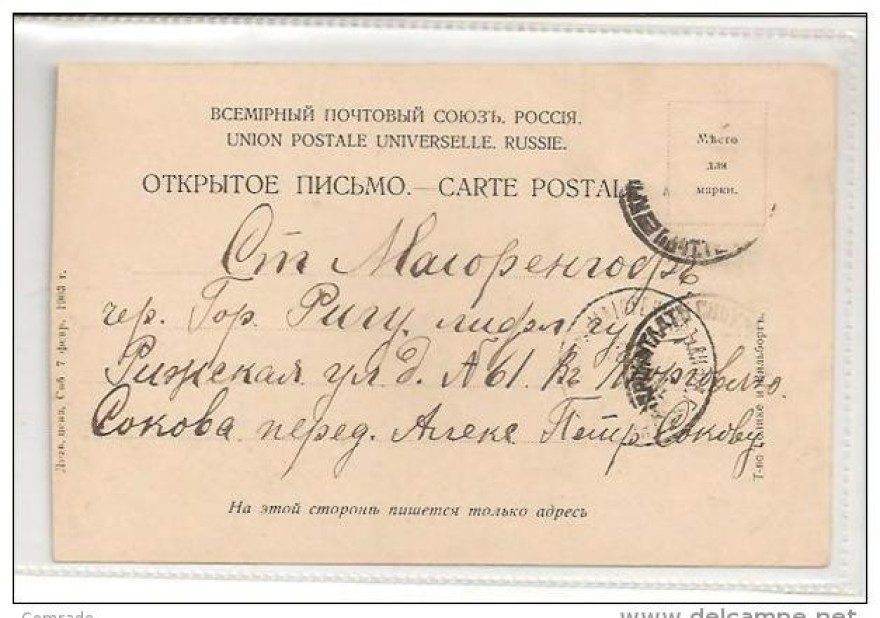 ВСЕМІРНЫЙ ПОЧТОВЫЙ СОЮЗЪ. РОССІЯ.
UNION POSTALE UNIVERSELLE. RUSSIE.
Мѣсто
для
марки.
ОТКРЫТОЕ ПИСЬМО.—CARTE POSTALE
Ст Магоренгофъ
чер. Гор. Ригу лифл гу
Рижская ул д. №61. Въ
Сокова перед. Петр Сокову
На этой сторонѣ пишется только адресъ
Дозв. ценз. Спб 7 февр. 1903 г.
Comrade
www.delcampe.net